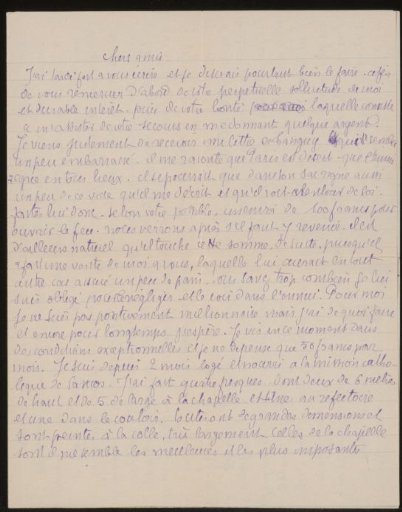 Chers amis
J'ai tardé fort à vous écrire et je désirais pourtant bien le faire. afin
de vous remercier d'abord de votre perpetuelle sollicitude de moi
et durable interêt. puis de votre bonté laquelle consiste
à m'assister de votre secours en me donnant quelque argent.
Je viens justement de recevoir une lettre de
un peu embarrassé. il me raconte que Paris est désert. que l'ennui
règne en tous lieux. il se pourrait que dans son
un peu de ce vote qu'il me décrit et qu'il voit autour de lui.
faites lui donc. selon votre possible. un envoi de 100 francs pour
ouvrir le feu. nous verrons après s'il faut y revenir. il est
d'ailleurs naturel qu'il touche cette somme. de suite, puisqu'il
a fait une vente de moi à vous, laquelle lui aurait en tout
autre cas assuré un peu de pain. vous savez trop combien je lui
suis obligé pour le négliger. et le voici dans l'ennui. Pour moi
je ne suis pas positivement millionnaire mais j'ai de quoi faire
et encore pour longtemps j'espère. Je vis en ce moment dans
des conditions exceptionnelles et je ne dépense que 50 francs par
mois. Je suis depuis 2 mois logé et nourri à la mission catho-
lique de J'ai fait quatre fresques. dont deux de 6 mètres
de haut et de 5 de large à la chapelle et une au réfectoire
et une dans le couloir. toutes ont de grandes dimensions et
sont peintes à la colle, très largement. Celles de la chapelle
sont il me semble les meilleures et les plus imposantes